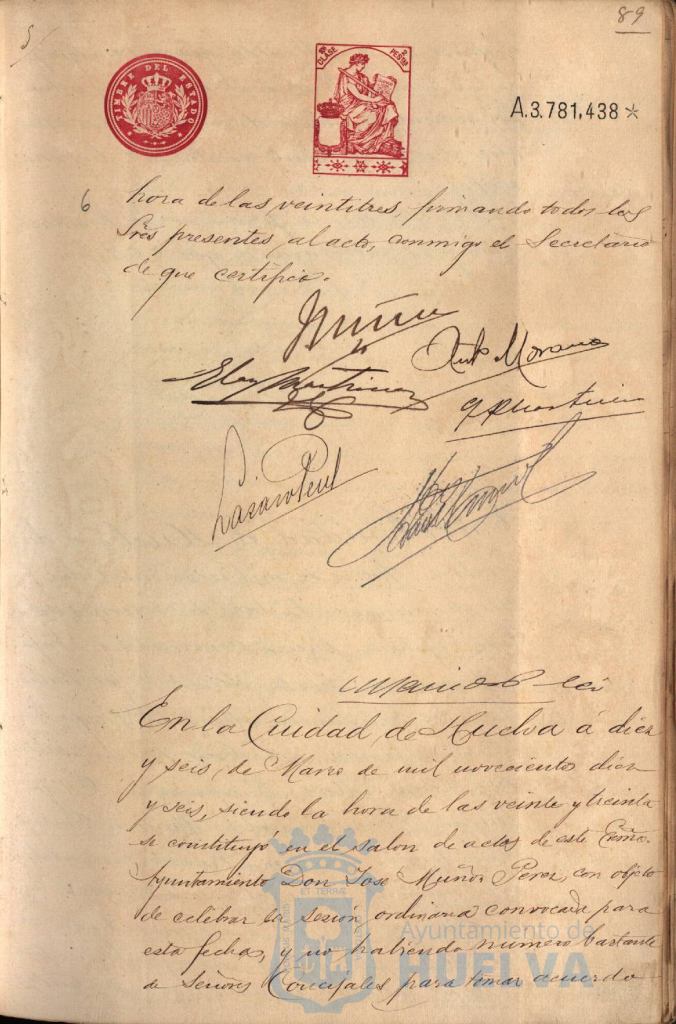 89
TIMBRE DEL ESTADO
CLASE
2 PESETAS
A.3.781,438 *
6
hora de las veintitres, firmando todos los
Sres presentes, al acto, conmigo el Secretario
de que certifico.
Muñoz
Antº Moreno
Eloy Martinez
Lázaro Perul
En la Ciudad, de Huelva á diez
y seis, de Marzo de mil novecientos diez
y seis, siendo la hora de las veinte y treinta
se constituyó en el salon de actos de este Excmo.
Ayuntamiento Don Jose Muñoz Perez, con objeto
de celebrar la sesión ordinaria convocada para
esta fecha, y no habiendo número bastante
de Señores Concejales para tomar acuerdo
Ayuntamiento de
HUELVA